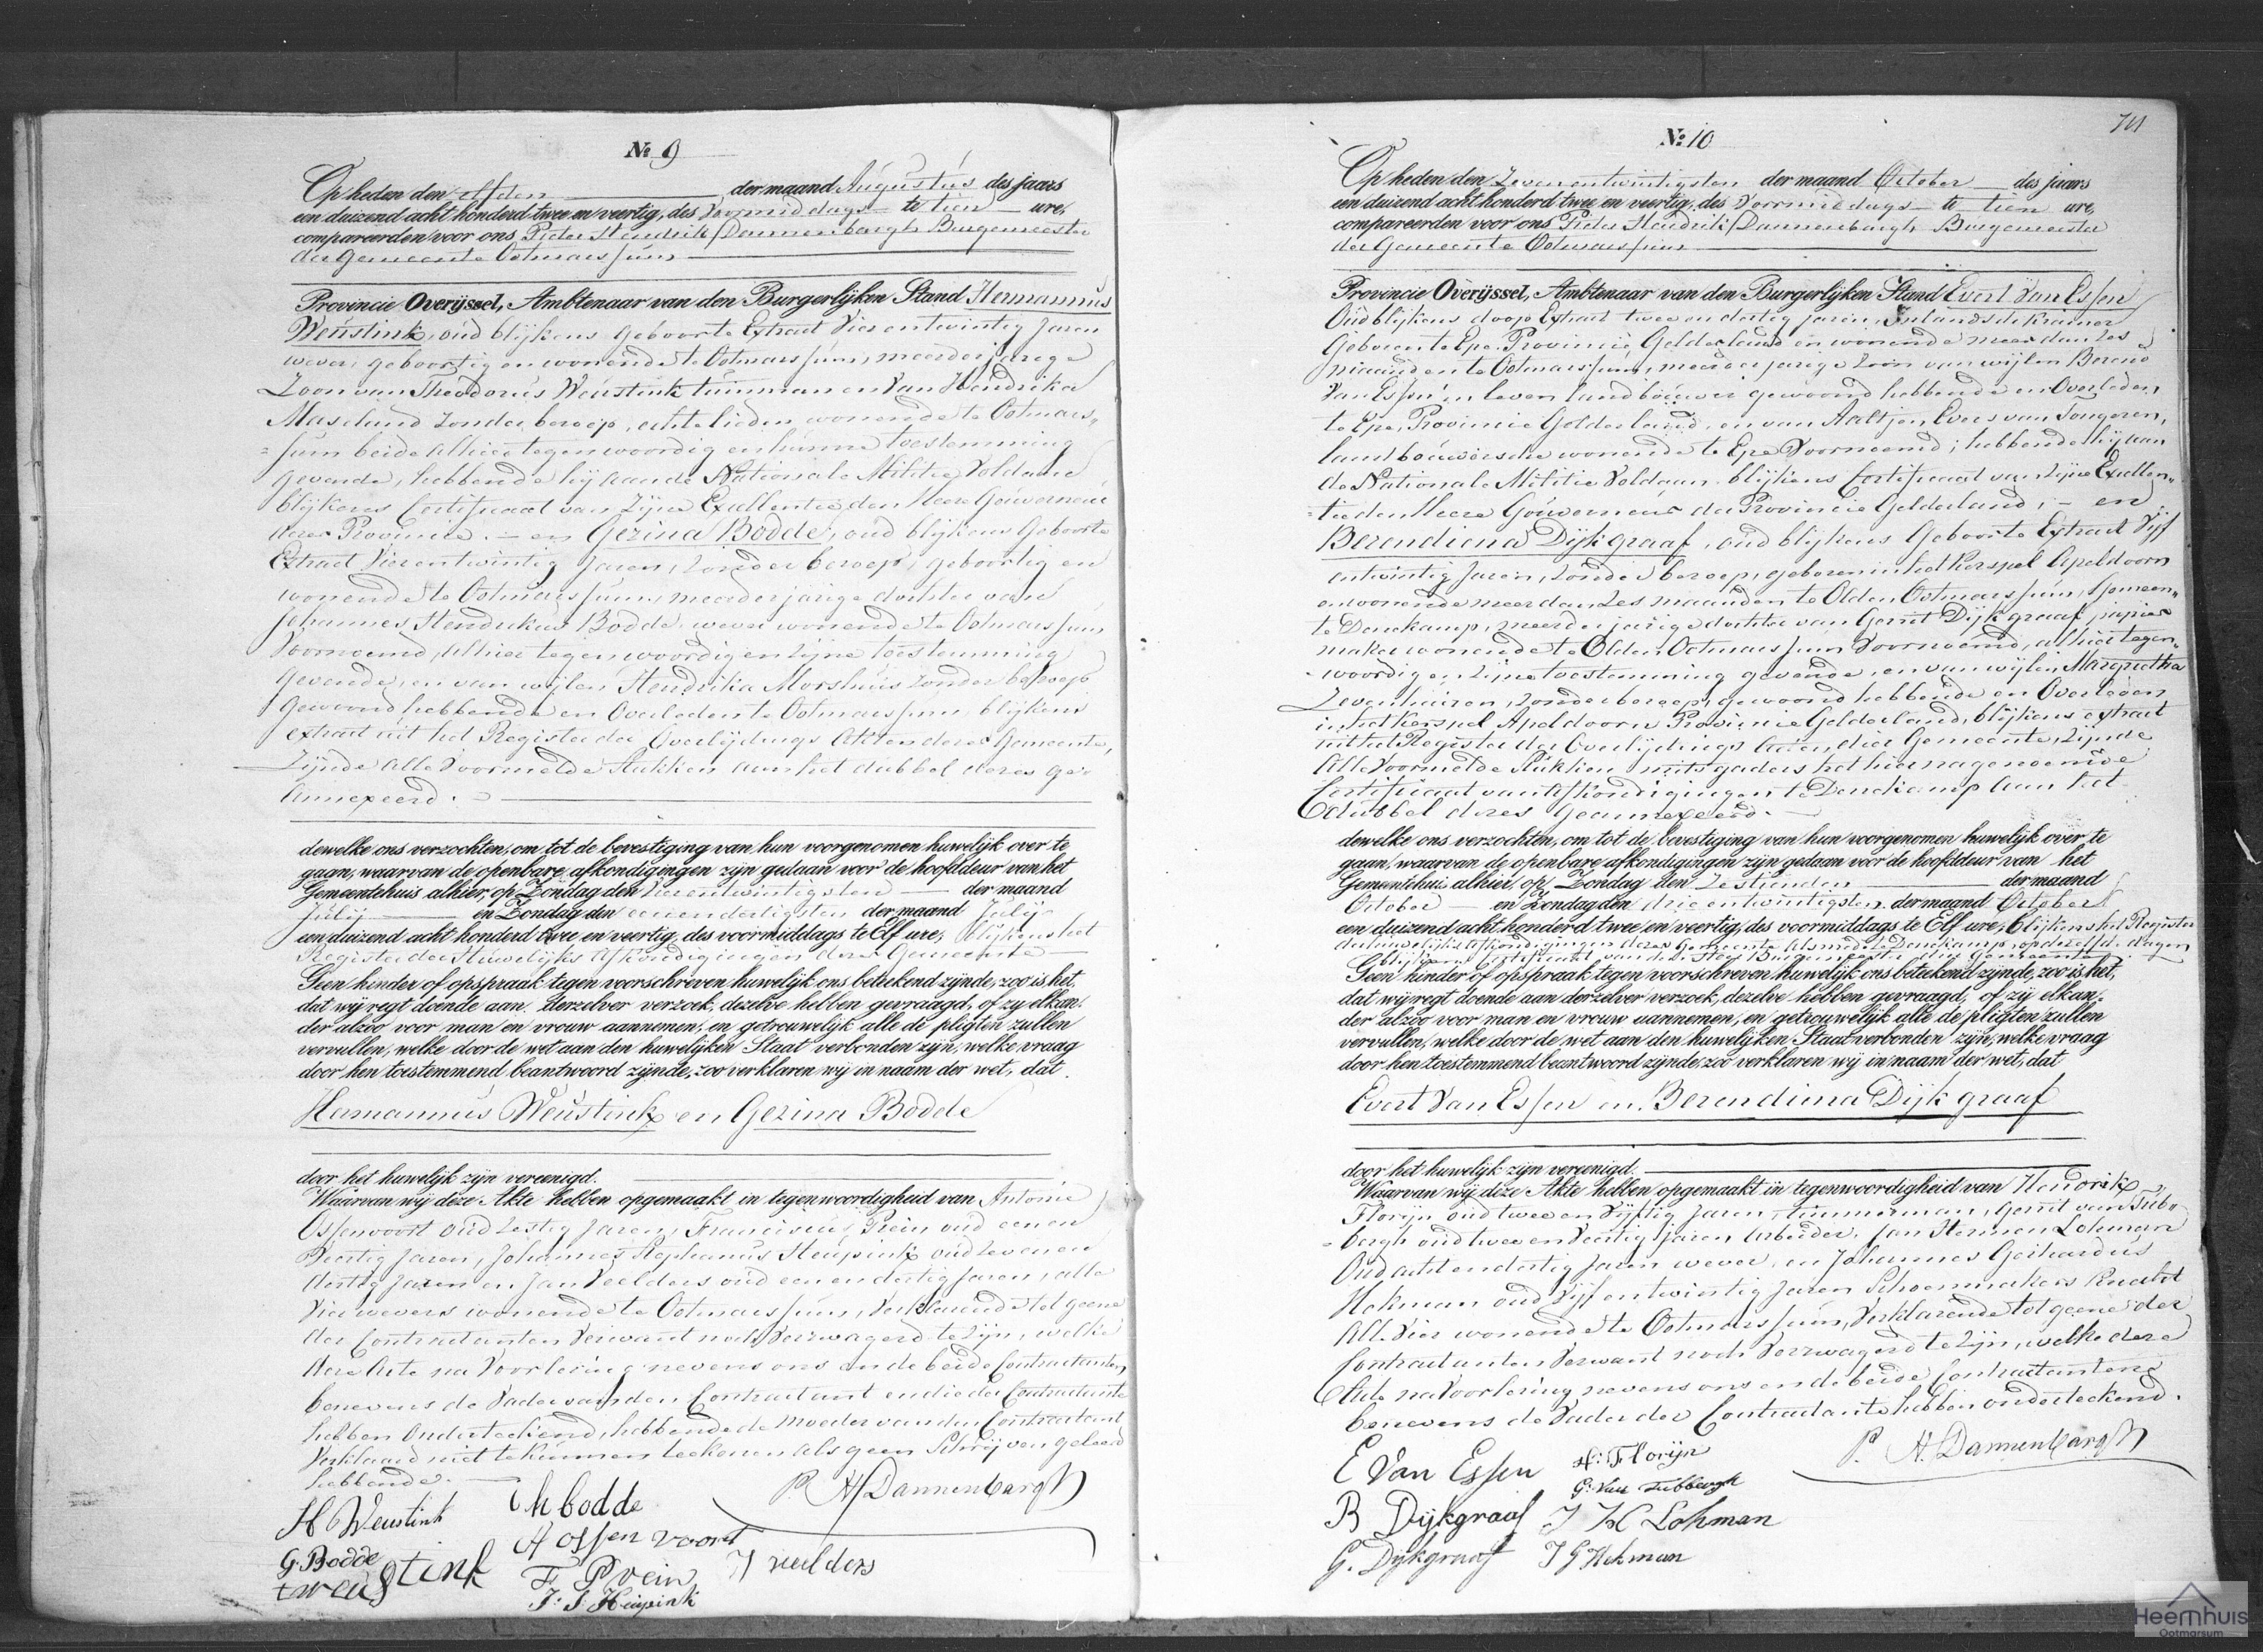 № 9
Op heden den elfden der maand Augustus des jaars
een duizend acht honderd twee en veertig, des Voormiddags te tien ure,
compareerden voor ons Pieter Hendrik Dannenbargh Burgemeester
der Gemeente Ootmarssum
Provincie Overijssel, Ambtenaar van den Burgerlijken Stand Hermannus
Weustink, oud blijkens geboorte Extract Vier entwintig Jaren
wever, geboortig en wonende te Ootmarssum, meerderjarige
Zoon van Theodorus Weustink tuinman en Van Hendrika
Masland zonder beroep, echtelieden wonende te Ootmars„
„sum beide alhier tegenwoordig en hunne toestemming
gevende, hebbende hij aan de Nationale Militie Voldaan
blijkens Certificaat van Zijne Excellentie den Heere Gouverneur
dezer Provincie. – en Gezina Bodde, oud blijkens Geboorte
Extract Vierentwintig Jaren, zonder beroep, geboortig en
wonende te Ootmarssum, meerderjarige dochter van
Johannes Hendrikus Bodde wever wonende te Ootmarssum
Voornoemd, alhier tegenwoordig en zijne toestemming
gevende, en van wijlen Hendrika Morshuis zonder beroep
gewoond hebbende en Overleden te Ootmarssum blijkens
extract uit het Register der Overlijdings Akten dezer Gemeente,
Zijnde alle Voormelde Stukken aan het dubbel dezes ge„
annexeerd.
dewelke ons verzochten, om tot de bevestiging van hun voorgenomen huwelijk over te
gaan, waarvan de openbare afkondigingen zijn gedaan voor de hoofddeur van het
Gemeentehuis alhier, op Zondag den Vierentwintigsten der maand
Julij en Zondag den eenendertigsten der maand Julij
een duizend acht honderd twee en veertig, des voormiddags te Elf ure, blijkens het
Register der Huwelijks Afkondigingen dezer Gemeente
Geen hinder of opspraak tegen voorschreven huwelijk ons betekend zijnde, zoo is het,
dat wij regt doende aan derzelver verzoek, dezelve hebben gevraagd, of zy elkan:
der alzoo voor man en vrouw aannemen, en getrouwelijk alle de pligten zullen
vervullen, welke door de wet aan den huwelijken Staat verbonden zijn, welke vraag
door hen toestemmend beantwoord zijnde, zoo verklaren wij in naam der wet, dat
Hermannus Weustink en Gezina Bodde
door het huwelijk zijn vereenigd.
Waarvan wij deze Akte hebben opgemaakt in tegenwoordigheid van Antonie
Ossenvoort oud Zestig Jaren, Franciscus Prein oud een en
Veertig Jaren, Johannes Stephanus Heupink oud Zeven en
dertig Jaren en Jan Veelders oud een en dertig Jaren, alle
Vier wevers wonende te Ootmarssum, Verklarende tot geene
der Contractanten Verwant noch Verzwagerd te zijn, welke
deze Acte na Voorlezing nevens ons en de beide Contractanten
benevens de Vader van den Contractant en die der Contractante
hebben Onderteekend, hebbende de Moeder van den Contractant
Verklaard niet te kunnen teekenen als geen Schrijven geleerd
hebbende.
H Weustink
G. Bodde
t weustink
bodde
A ossen voort
F Prein
J: S: Heupink
J veelders
P. H Dannenbargh
№ 10
Op heden den Zevenentwintigsten der maand October des jaars
een duizend acht honderd twee en veertig, des Voormiddags te tien ure,
compareerden voor ons Pieter Hendrik Dannenbargh Burgemeester
der Gemeente Ootmarssum
Provincie Overijssel, Ambtenaar van den Burgerlijken Stand Evert Van Essen
Oud blijkens doop Extract twee en dertig jaren, Inlandsche kramer
Geboren te Epe Provincie Gelderland en wonende meer dan zes
maanden te Ootmarssum, meerderjarige Zoon van wijlen Berend
Van Essen in leven landbouwer gewoond hebbende en Overleden
te Epe, Provincie Gelderland, en van Aaltjen Evers van Tongeren,
landbouwersche wonende te Epe Voornoemd; hebbende hij aan
de Nationale Militie Voldaan blijkens Certificaat van Zijne Excellen„
„tie den Heere Gouverneur der Provincie Gelderland, – en
Berendiena Dijkgraaf, oud blijkens Geboorte Extract Vijf
entwintig Jaren, zonder beroep, geboren in het Kerspel Apeldoorn
en wonende meer dan Zes maanden te Olden Ootmarssum, Gemeen„
te Denekamp, meerderjarige dochter van Gerrit Dijkgraaf, papier
maker wonende te Olden Ootmarssum Voornoemd, alhier tegen„
woordig en zijne toestemming gevende, en van wijlen Margretha
Zevenhuizen, zonder beroep, gewoond hebbende en Overleden
in het Kerspel Apeldoorn Provincie Gelderland, blijkens extract
uit het Register der Overlijdings Acten dier Gemeente, Zijnde
Alle Voormelde Stukken mitsgaders het hierna genoemde
Certificaat van Afkondigingen te Denekamp aan het
dubbel dezes geannexeerd.
dewelke ons verzochten, om tot de bevestiging van hun voorgenomen huwelijk over te
gaan, waarvan de openbare afkondigingen zijn gedaan voor de hoofddeur van het
Gemeentehuis alhier, op Zondag den Zestienden der maand
October en Zondag den drie entwintigsten der maand October
een duizend acht honderd twee en veertig, des voormiddags te Elf ure, blijkens het Register
der huwelijks Afkondigingen dezer Gemeente Alsmede te Denekamp op dezelfde dagen
blijkens Certificaat van den Heer Burgemeester dier Gemeente.
Geen hinder of opspraak tegen voorschreven huwelijk ons betekend zijnde, zoo is het,
dat wij regt doende aan derzelver verzoek, dezelve hebben gevraagd, of zij elkan:
der alzoo voor man en vrouw aannemen, en getrouwelijk alle de pligten zullen
vervullen, welke door de wet aan den huwelijken Staat verbonden zijn, welke vraag
door hen toestemmend beantwoord zijnde, zoo verklaren wij in naam der wet, dat
Evert Van Essen en Berendiena Dijkgraaf
door het huwelijk zijn vereenigd.
Waarvan wij deze Akte hebben opgemaakt in tegenwoordigheid van Hendrik
Florijn oud twee en Vijftig Jaren, timmerman, Gerrit van Tub„
„bergh oud twee en Veertig Jaren Arbeider, Jan Hermen Lohman
Oud acht en dertig Jaren wever, en Johannes Gerhardus
Hekman oud Vijf entwintig Jaren Schoenmakers Knecht
Alle Vier wonende te Ootmarssum, Verklarende tot geene der
Contractanten Verwant noch Verzwagerd te Zijn, welke deze
Akte na Voorlezing nevens ons en de beide Contractanten
benevens de Vader der Contractante hebben onderteekend.
E Van Essen
B Dijkgraaf
G. Dijkgraaf
H: Florijn
G: Van Tubbergh
J H Lohman
J G Hekman
P. H. Dannenbargh
Heemhuis
Ootmarsum